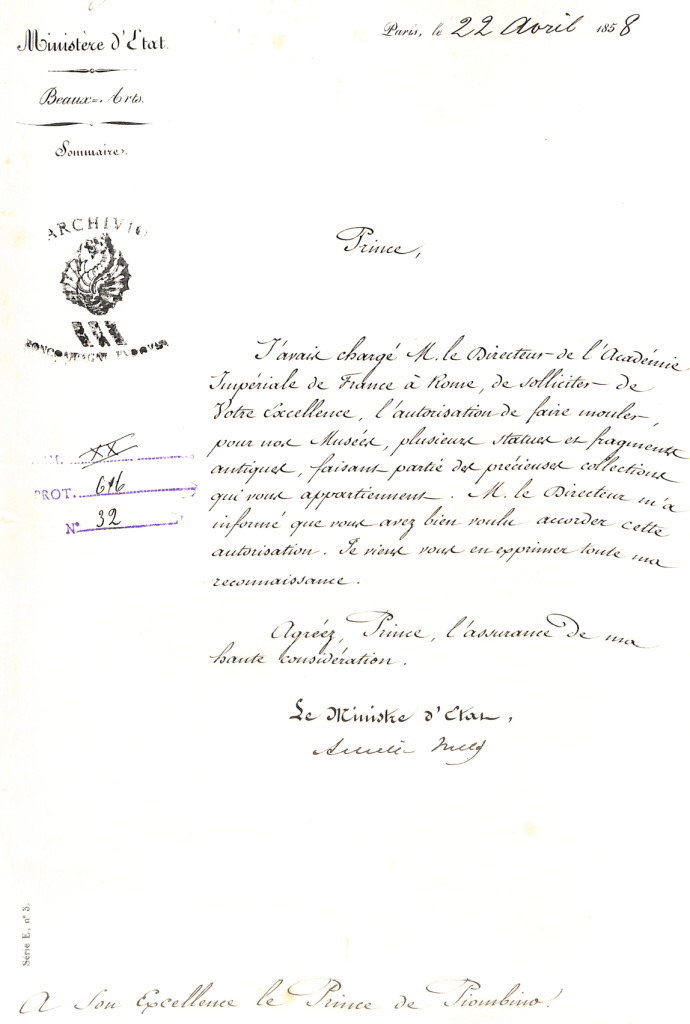 Paris, le 22 Avril 1858
Ministère d'Etat.
Beaux=Arts.
Sommaire.
ARCHIVIO
BONCOMPAGNI LUDOVISI
Prince,
J'avais chargé M. le Directeur de l'Académie
Impériale de France à Rome, de solliciter de
Votre Excellence, l'autorisation de faire mouler,
pour nos Musées, plusieurs statues et fragments
antiques, faisant partie des précieuses collections
qui vous appartiennent. M. le Directeur m'a
informé que vous avez bien voulu accorder cette
autorisation. Je viens vous en exprimer toute ma
reconnaissance.
XX
PROT. 616
N° 32
Agréez, Prince, l'assurance de ma
haute considération.
Le Ministre d'Etat,
Série E, n° 3.
A Son Excellence le Prince de Piombino.